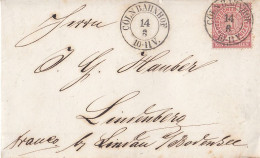 CÖLN BAHNHOF
14
8
10-11 V.
CÖLN BAHNHOF
14
8
10-11 V.
Herrn
J. G. Hauber
Lindenberg
franco by Lindau a/Bodensee